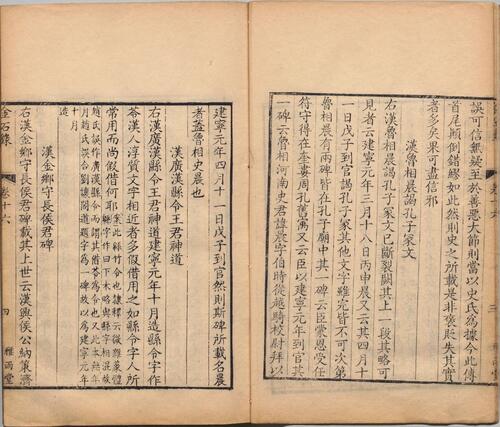 誤可信無疑至於善惡大節則當以史氏為據今此傳
首尾顛倒錯繆如此然則史之所載是非褒貶失其實
者多矣果可盡信邪
漢魯相晨謁孔子冢文
右漢魯相晨謁孔子冢文已斷裂闕其上一段其略可
見者云建寧元年三月十八日丙申晨又云其四月十
一日戊子到官謁孔子冢其他文字雖完皆不可次第
魯相晨有兩碑皆在孔子廟中其一碑云臣蒙恩受任
符守得在奎婁周孔舊寓又云臣以建寧元年到官其
一碑云魯相河南史君諱晨字伯時從越騎校尉拜以
建寧元年四月十一日戊子到官然則斯碑所載名晨
者蓋魯相史晨也
漢廣漢縣令王君神道
右漢廣漢縣令王君神道建寧元年十月造縣令字作
苓漢人淳質文字相近者多假借用之如縣令字人所
常用而尚假借何耶
十月
造
漢金鄉守長侯君碑
右漢金鄉守長侯君碑載其上世云漢興侯公納策濟
金石錄
卷十六
四
雅雨堂